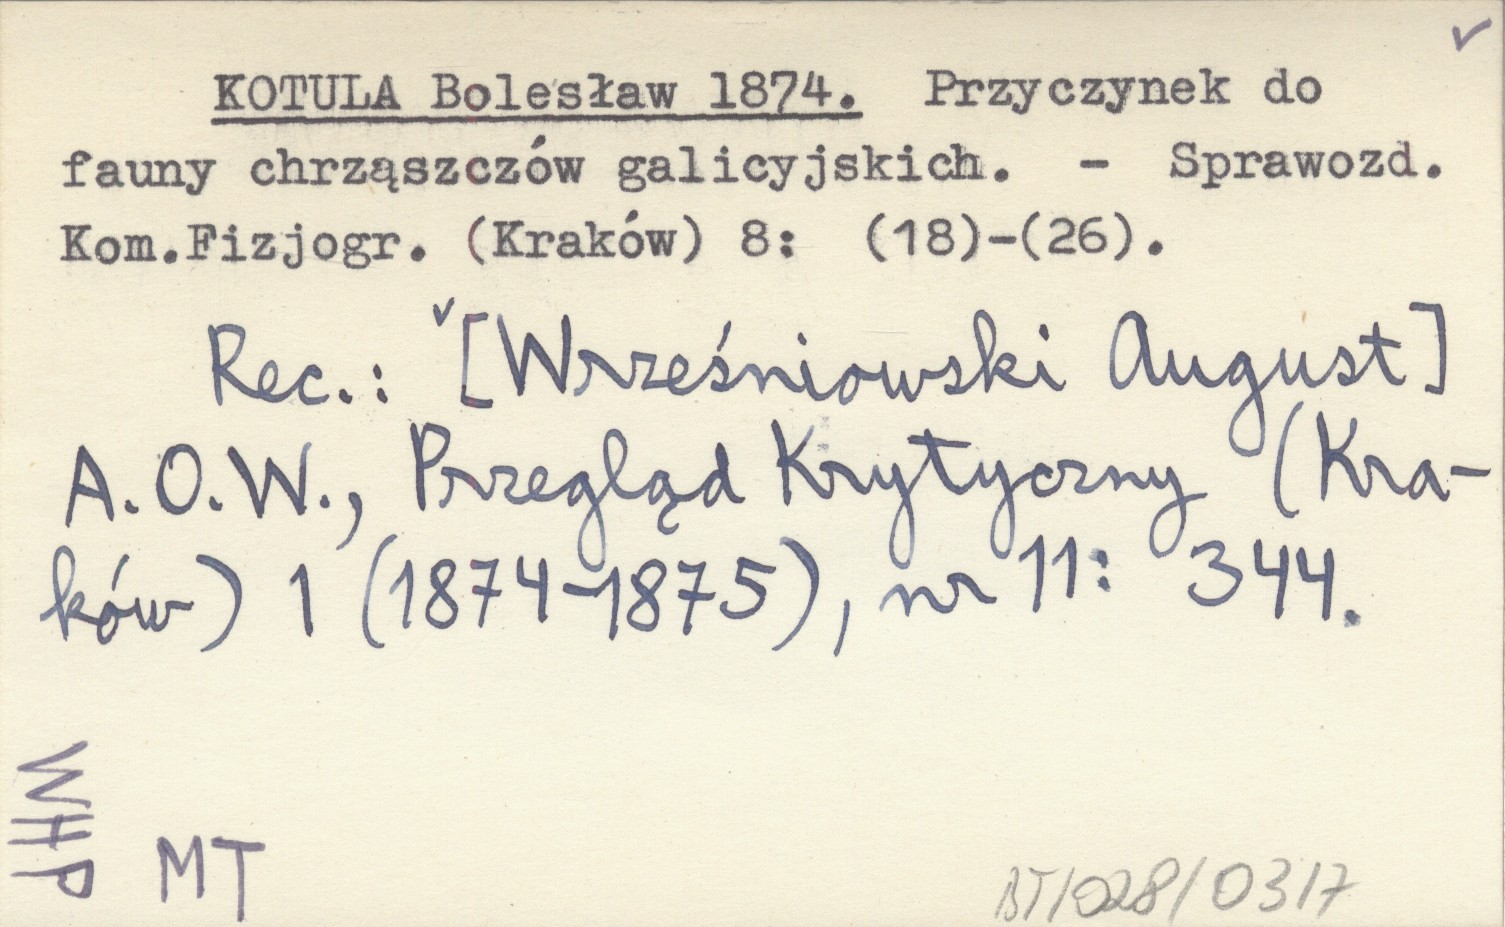 KOTULA Bolesław 1874. Przyczynek do
fauny chrząszczów galicyjskich. - Sprawozd.
Kom.Fizjogr. (Kraków) 8: (18)-(26).
Rec.: [Wrześniowski August]
A.O.W., Przegląd Krytyczny (Kra-
ków) 1 (1874-1875), nr 11: 344.
WHP
MT
BT/028/0317